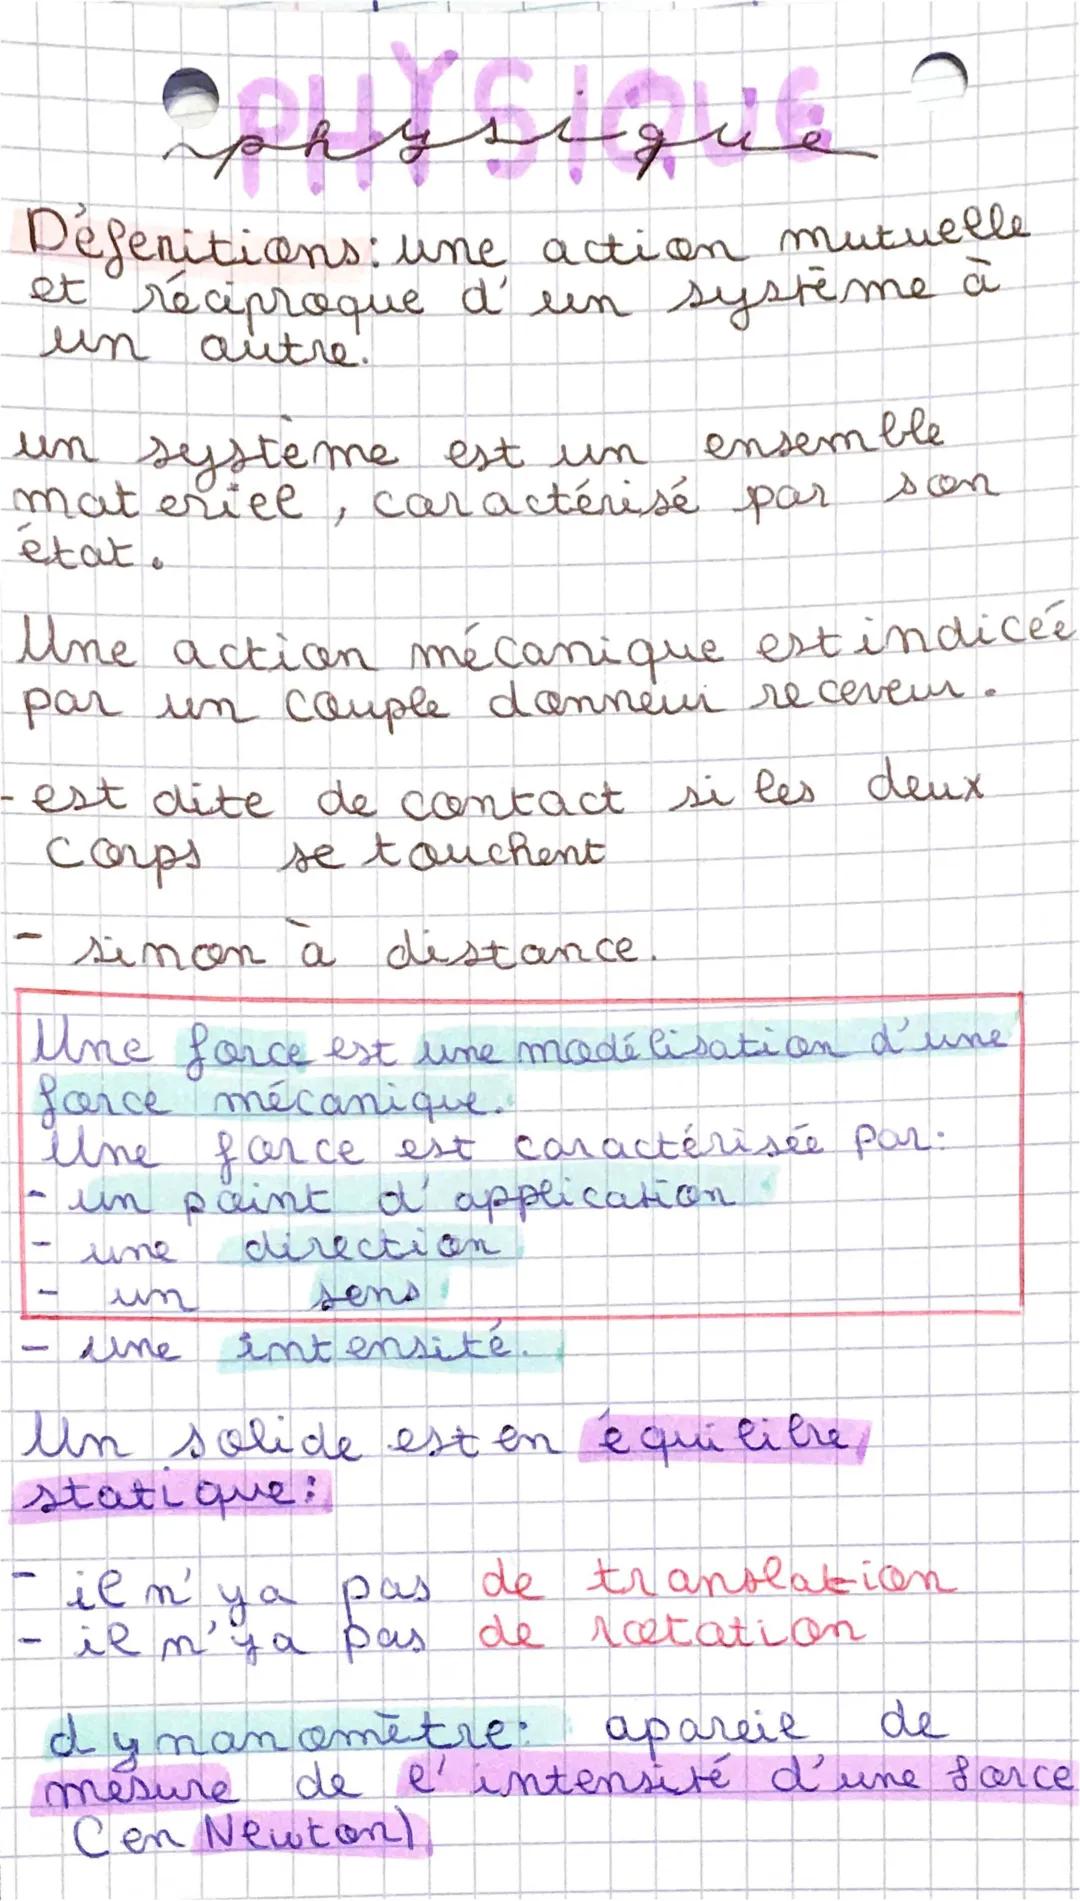 PHYSIQUE
physique
Défenitions: une action mutuelle
et réciproque d'un système à
un autre.
un système est un ensemble
materiel, caractérisé par son
état.
Une action mécanique est indiceé
par un couple donneur receveur.
- est dite de contact si les deux
corps se touchent
- sinon à distance.
Une force est une modélisation d'une
force mécanique.
Une force est caractérisée par:
- un point d'application
- une direction
- un sens
- une intensité.
Un solide est en équilibre
statique:
- il n'ya pas de translation
- il n'ya pas de rotation
dynanomètre: apareil de
mesure de l'intensité d'une force
(en Newton)